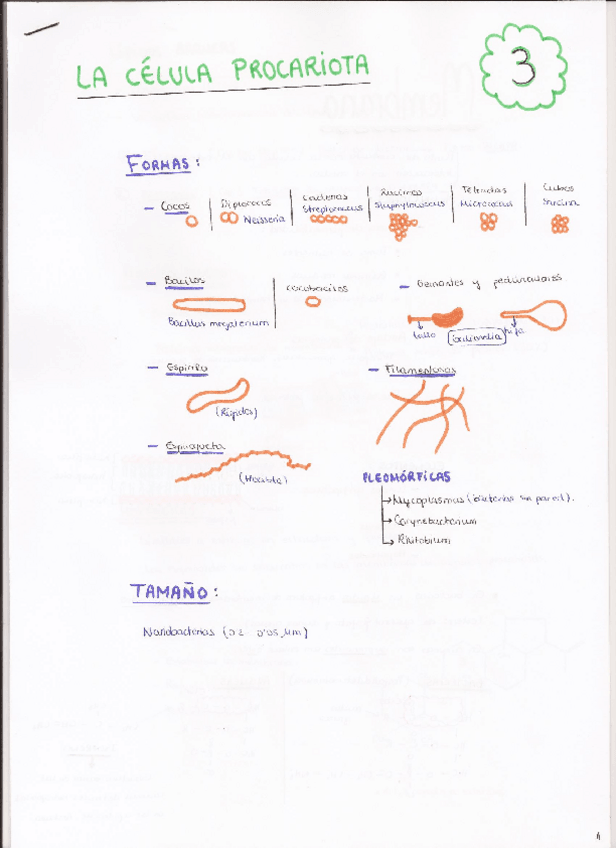 LA CÉLULA PROCARIOTA
3
FORMAS:
- Cocos
Diplococos
Neisseria
Cadenas
Streptococcus
Racimos
Staphylococcus
Tétradas
Micrococcus
Cubos
Sarcina
- Bacilos
Bacillus megaterium
cocobacilos
- Gemantes y pedunculadas
tallo
hifa
- Espirilo
(Rígidos)
- Filamentosas
- Espiroqueta
(Flexible)
PLEOMÓRFICAS
Mycoplasmas (bacterias sin pared).
Corynebacterium
Rhizobium
TAMAÑO:
Nanobacterias (0'2 0'05 µm)